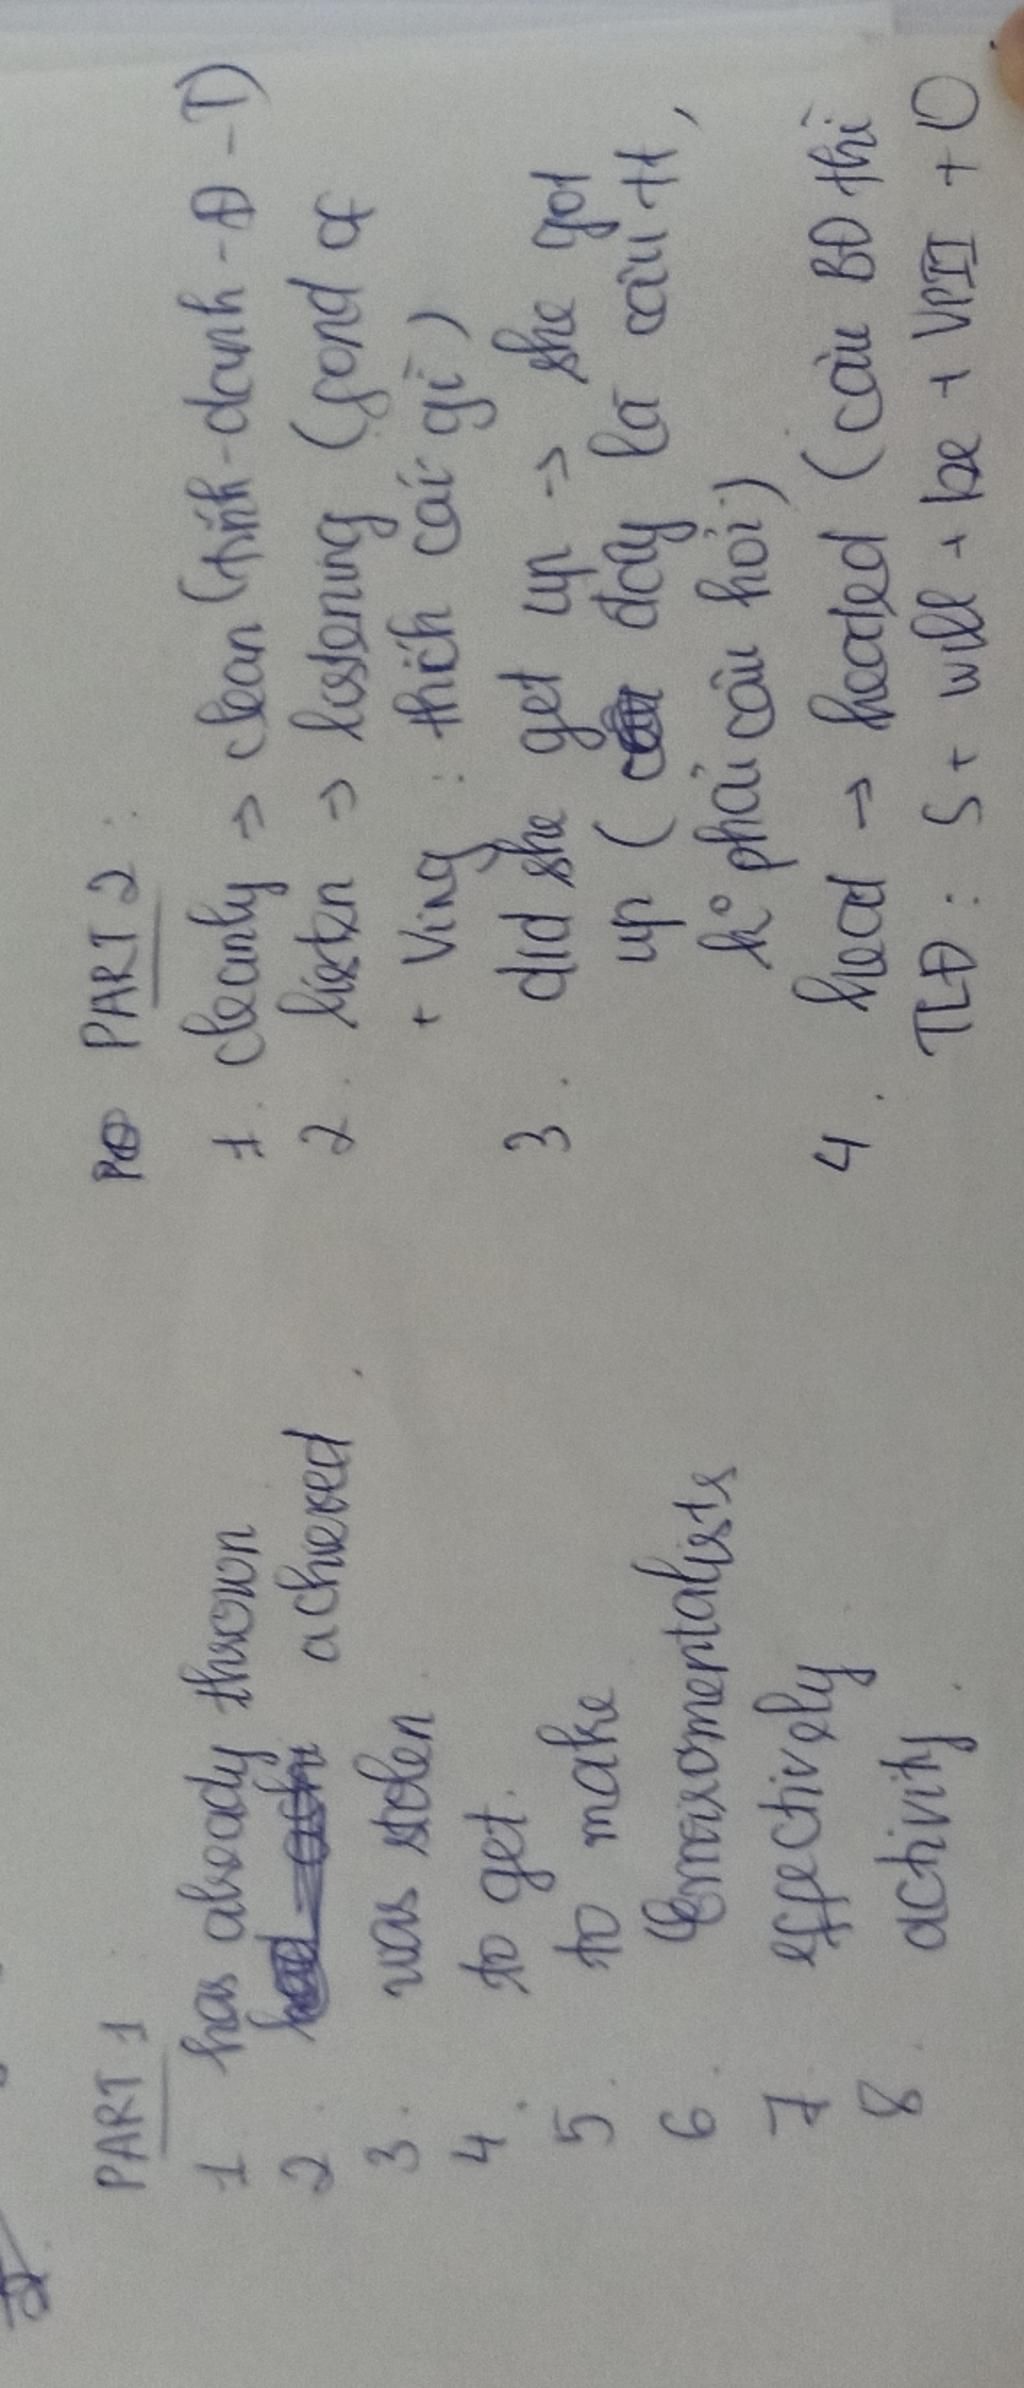 PART 1
1 has already thrown
2. achieved.
3. was stolen
4. to get.
5. to make
6. Enviromentalists
7. effectively
8 activity.
PART 2 :
1. cleanly -> clean (tính - danh - Đ - T)
2. listen -> listening (fond of
+ Ving : thích cái gì)
3. did she get up -> she got
up ( day là câu tt,
k° phải câu hỏi)
4. heat -> heated (câu BĐ thì
TLĐ : S + will + be + VPII + O